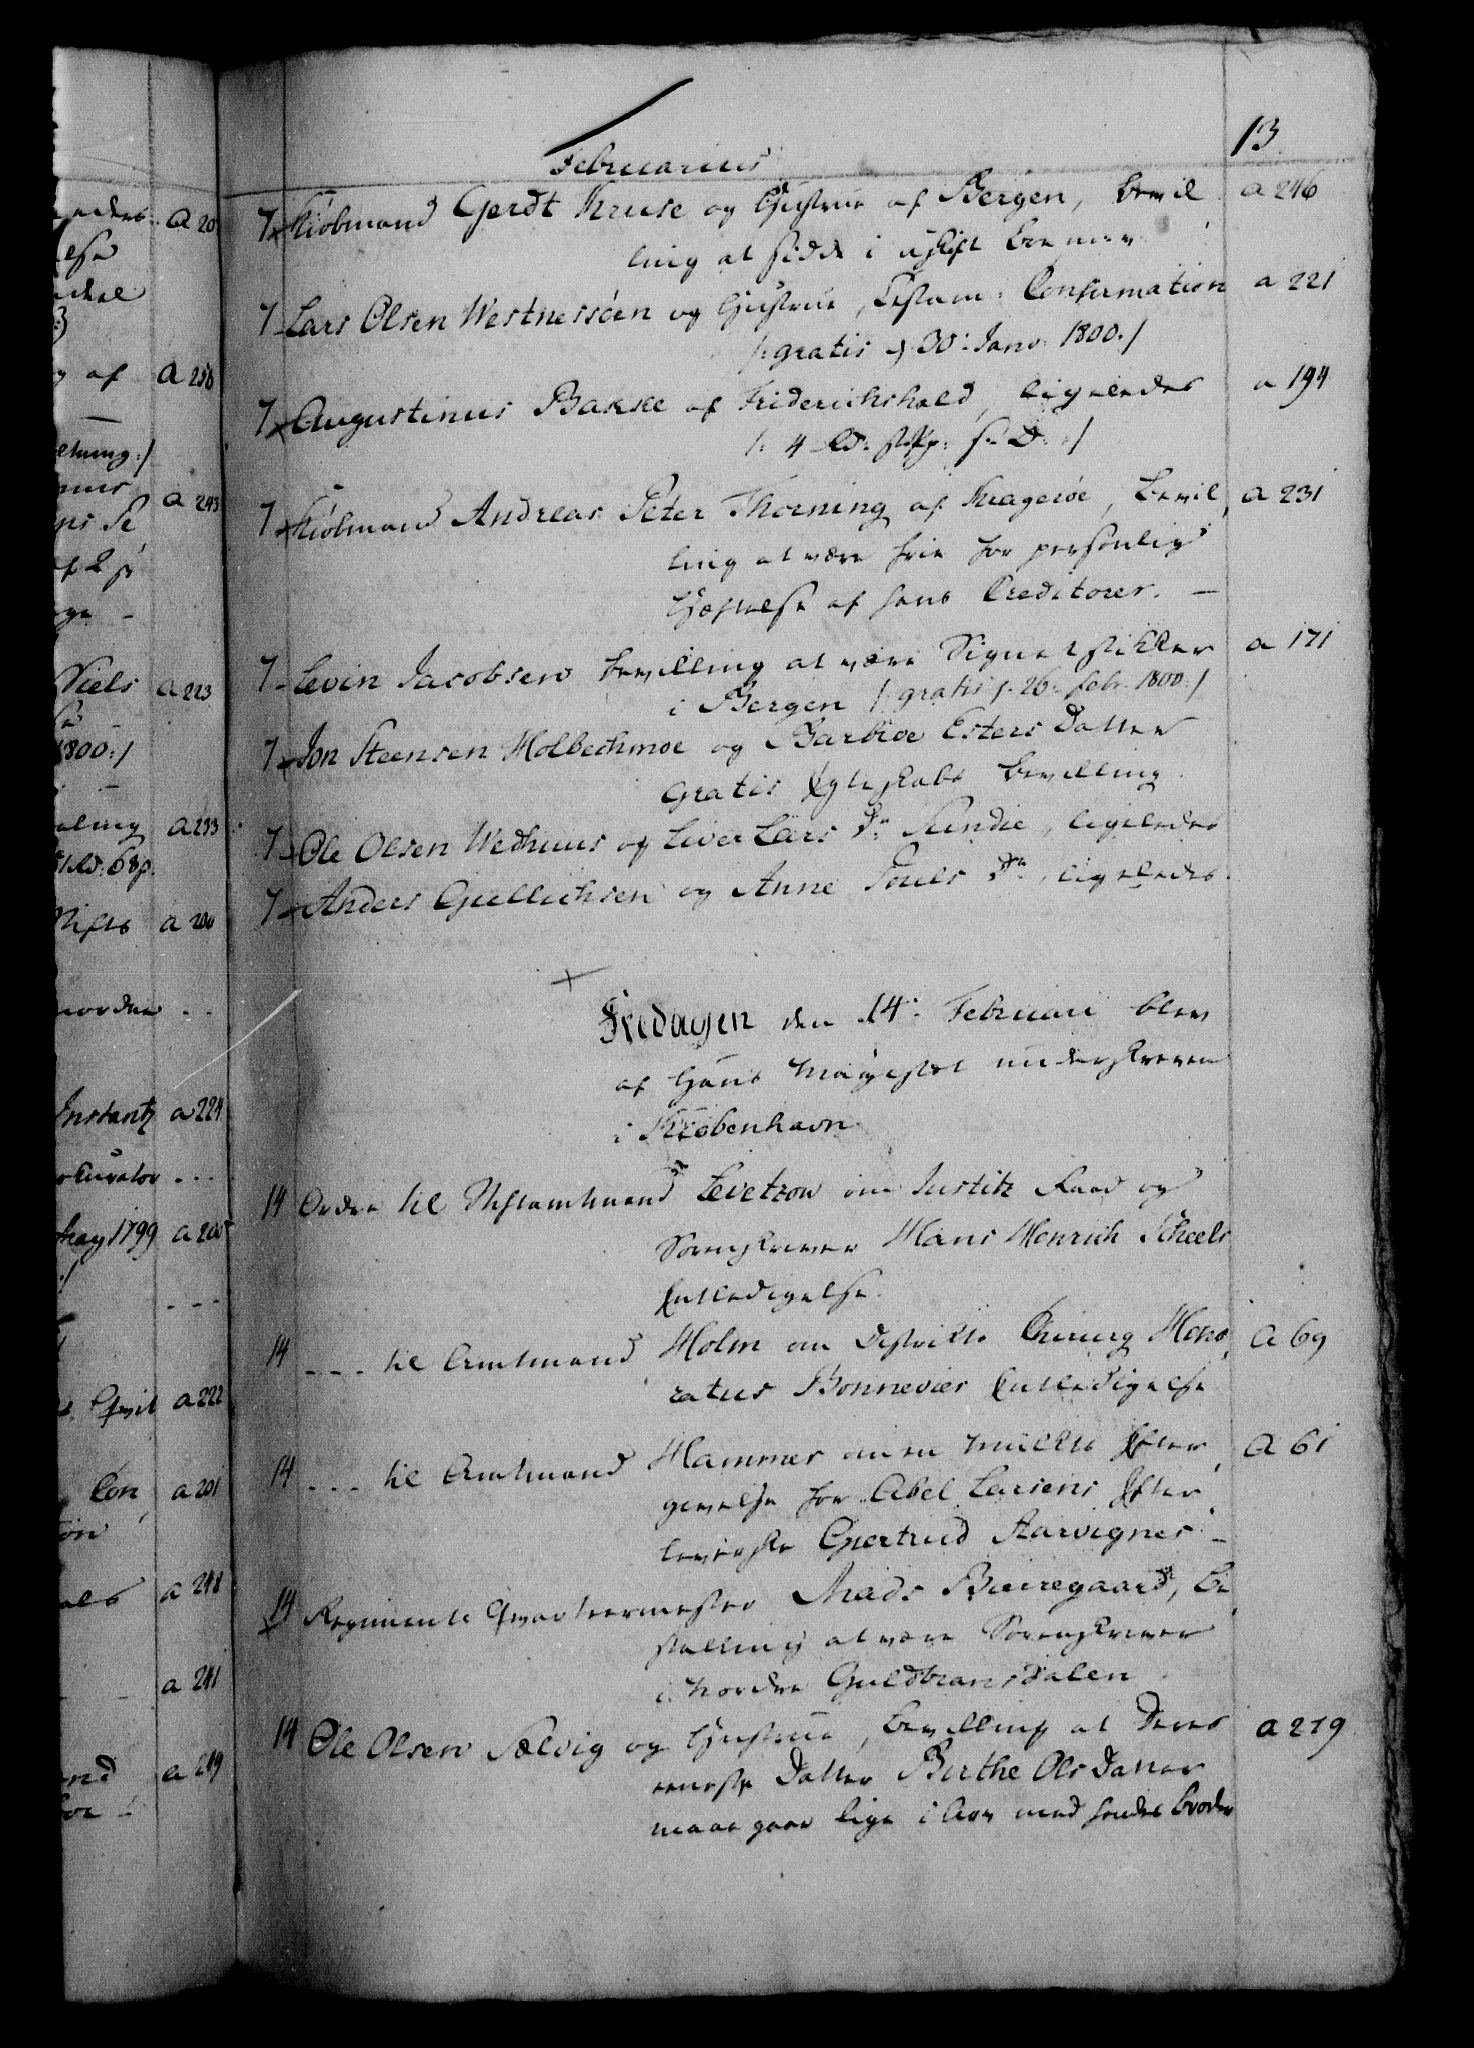 13.
Februarius
7 Kiöbmand Gerdt Kruse og Hustrue af Bergen, bevil a 246
ling at sidde i uskift boe mm
7 Lars Olsen Westnessöen og Hustrue, Testam: Confirmation a 221
/: gratis d 30: Janv: 1800 :/
7 Augustinus Bakke af Friderichshald, ligeledes a 194
/: 4 Rd:
7 Kiöbmand Andreas Peter Thorning af Kragerøe, bevil a 231
ling at være frie for personlig
Hæftelse af hans Creditorer. —
7 Levin Jacobsen bevilling at være Signetstikker a 171
i Bergen /: gratis f. 26: febr. 1800 :/
7 Jon Steensen Holbechmoe og Barbroe Esters Datter
gratis Ægteskabs bevilling.
7 Ole Olsen Wedhuus og Liver Lars Dr: Sundie, ligeledes
7 Anders Gullichsen og Anne Pouls Dr, ligeledes.
Fredagen den 14: Februari blev
af Hans Mayestet underskreven
i Kiøbenhavn
14 Ordre til Stiftamtmand Levetzow om Justitz Raad og
Sorenskriver Hans Henrich Scheels
Entledigelse.
14 - - - til Amtmand Holm om Distrikts Chirurg Hono a 69
ratus Bonnevies Entledigelse
14 - - - til Amtmand Hammer om en mulkts Efter a 61
givelse for Abel Larsens Efter
leverske Giertrud Aarvignes —
14 Regiments Qvarteermester Mads Bieregaard, be
stalling at være Sorenskriver
i Nordre Guldbransdalen
14 Ole Olsen Selvig og Hustrue, bevilling at Deres a 279
eeneste Datter Birthe Ols Datter
maae gaae lige i Arv med hendes broder
a 20
af a 258
a 243
Niels a 223
1800 :/
a 233
a 200
Instantz a 224
May 1799
a 222
Con a 201
a 248
a 241
a 249